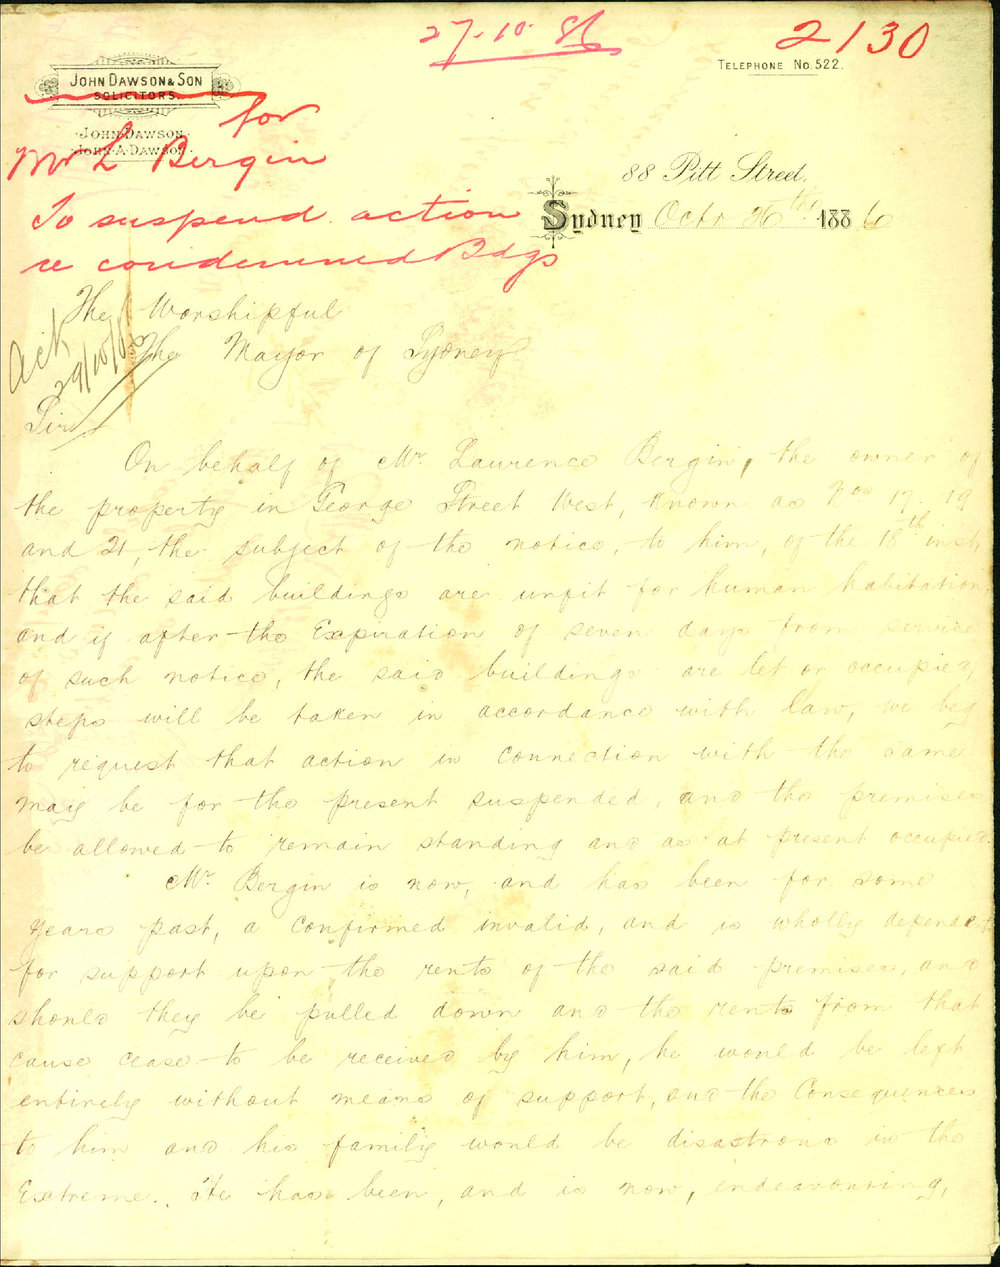 27-10-86
2130
TELEPHONE NO. 522.
JOHN DAWSON & SON
SOLICITORS
JOHN DAWSON
JOHN A. DAWSON
for
Mr L Bergin
To suspend action
re condemned Bdgs
88 Pitt Street.
Sydney Octr 26th 1886
The Worshipful
The Mayor of Sydney
Ack
29/10/86
Sir
On behalf of Mr. Laurence Bergin, the owner of
the property in George Street West, known as Nos 17. 19
and 21, the subject of the notice, to him, of the 18th inst,
that the said buildings are unfit for human habitation,
and if after the Expiration of seven days from service
of such notice, the said buildings are let or occupied,
steps will be taken in accordance with law, we beg
to request that action in connection with the same
may be for the present suspended, and the premises
be allowed to remain standing and as at present occupied.
Mr. Bergin is now, and has been for some
years past, a confirmed invalid, and is wholly dependent
for support upon the rents of the said premises, and
should they be pulled down and the rents from that
cause cease to be received by him, he would be left
entirely without means of support, and the Consequences
to him and his family would be disastrous in the
Extreme. He has been, and is now, endeavouring,